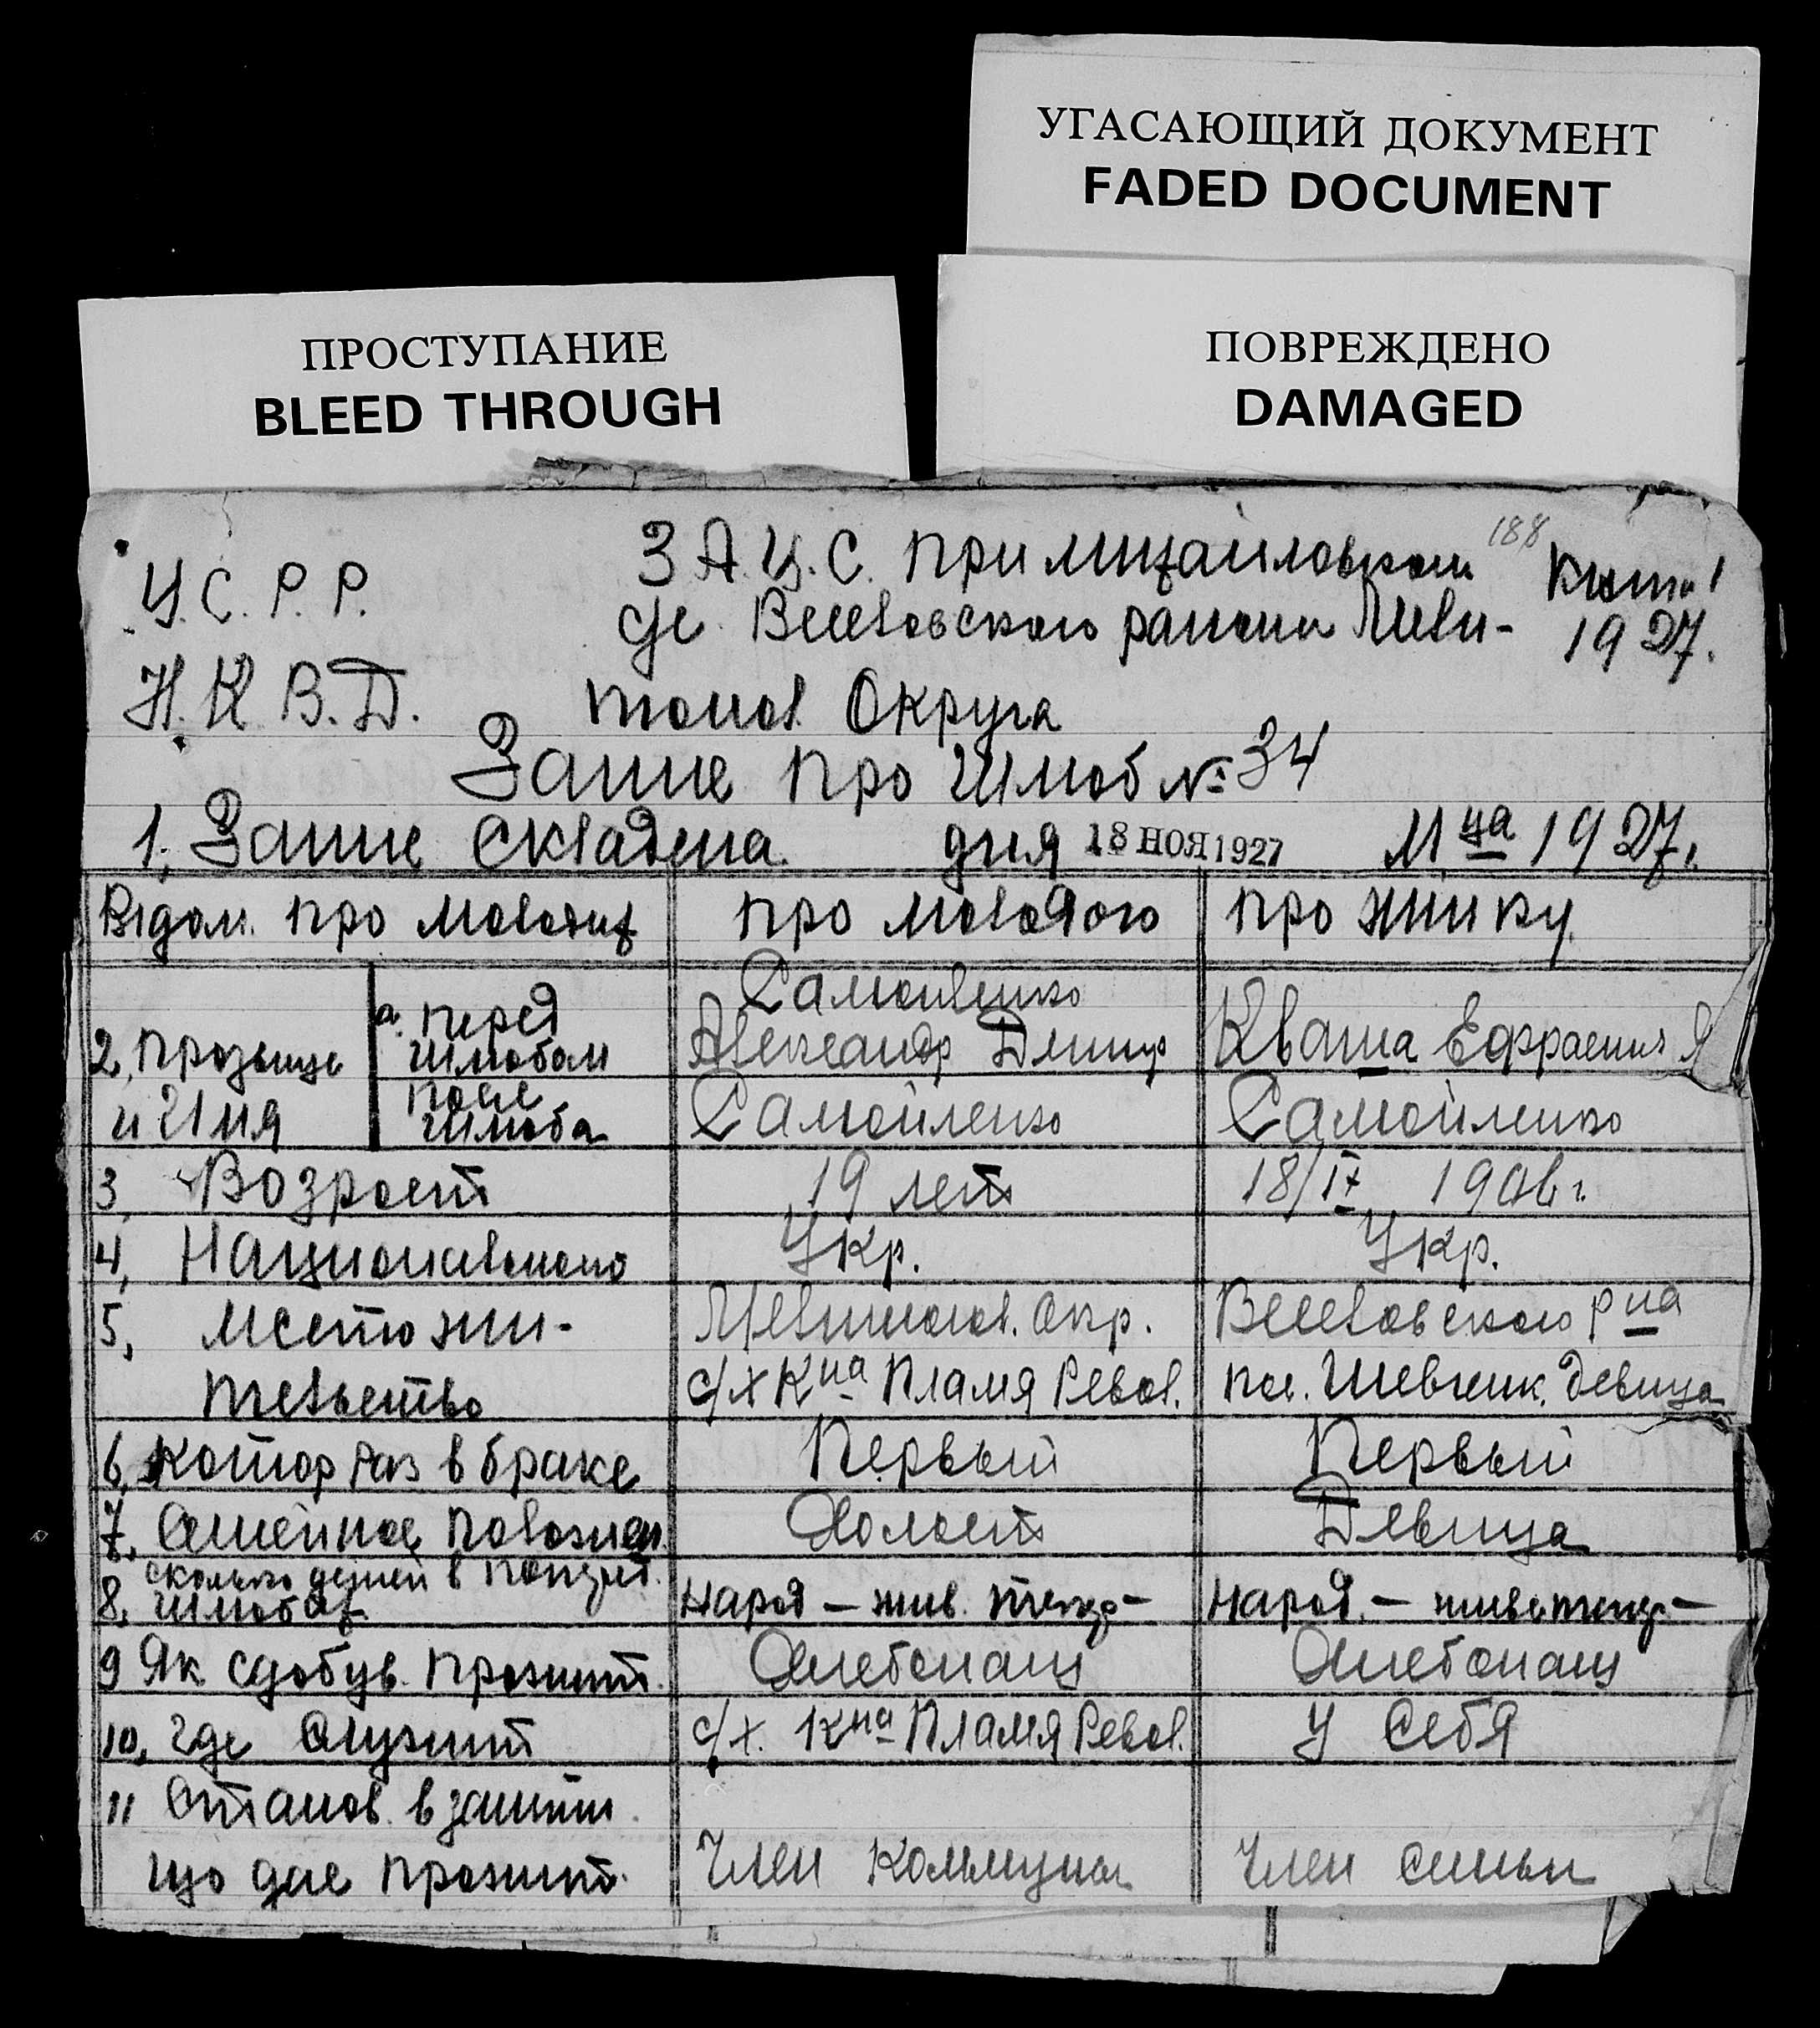 УГАСАЮЩИЙ ДОКУМЕНТ
FADED DOCUMENT
ПРОСТУПАНИЕ
BLEED THROUGH
ПОВРЕЖДЕНО
DAMAGED
188
У.С.Р.Р.
З.А.Ц.С. при Михайловском
Книга 1
с/с Веселовского района Мели-
1927.
Н.К.В.Д.
топол. Округа
Запис про Шлюб № 34
1, Запис складена дня 18 НОЯ 1927 М ця 1927.
Відом. про молодих про молодого про жинку
2, Прозвище и Имя
а. перед шлюбом
Самойленко Александр Дмитр
Кваша Ефросиния Я
после шлюба
Самойленко
Самойленко
3, Возраст 19 лет 18/IX 1906 г.
4, Национальность Укр. Укр.
5, Место жи- Мелитопол. Окр. Веселовского р на
тельство с/х К на Пламя Револ. пос. Шевченк. девица
6, Котор раз в браке Первый Первый
7, Семейное положен. Холост Девица
8, сколько детей в попуред. шлюбах народ – жив. тепер – народ. – живе тепер –
9 Як сдобув. прожит. Хлебопащ Хлебопащ
10, Где служит с/х. К на Пламя Револ. У себя
11 Станов. в занятт.
що дае прожит. Член Коммуны Член семьи